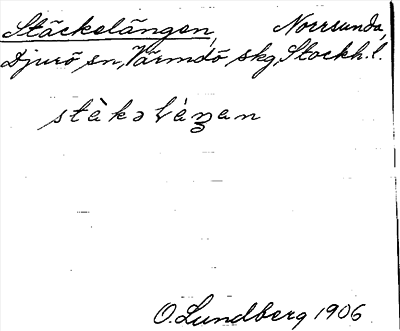 Stäckelängen, Norrsunda,
Djurö sn, Värmdö skg, Stockh. l.
stäkəläŋan
O. Lundberg 1906